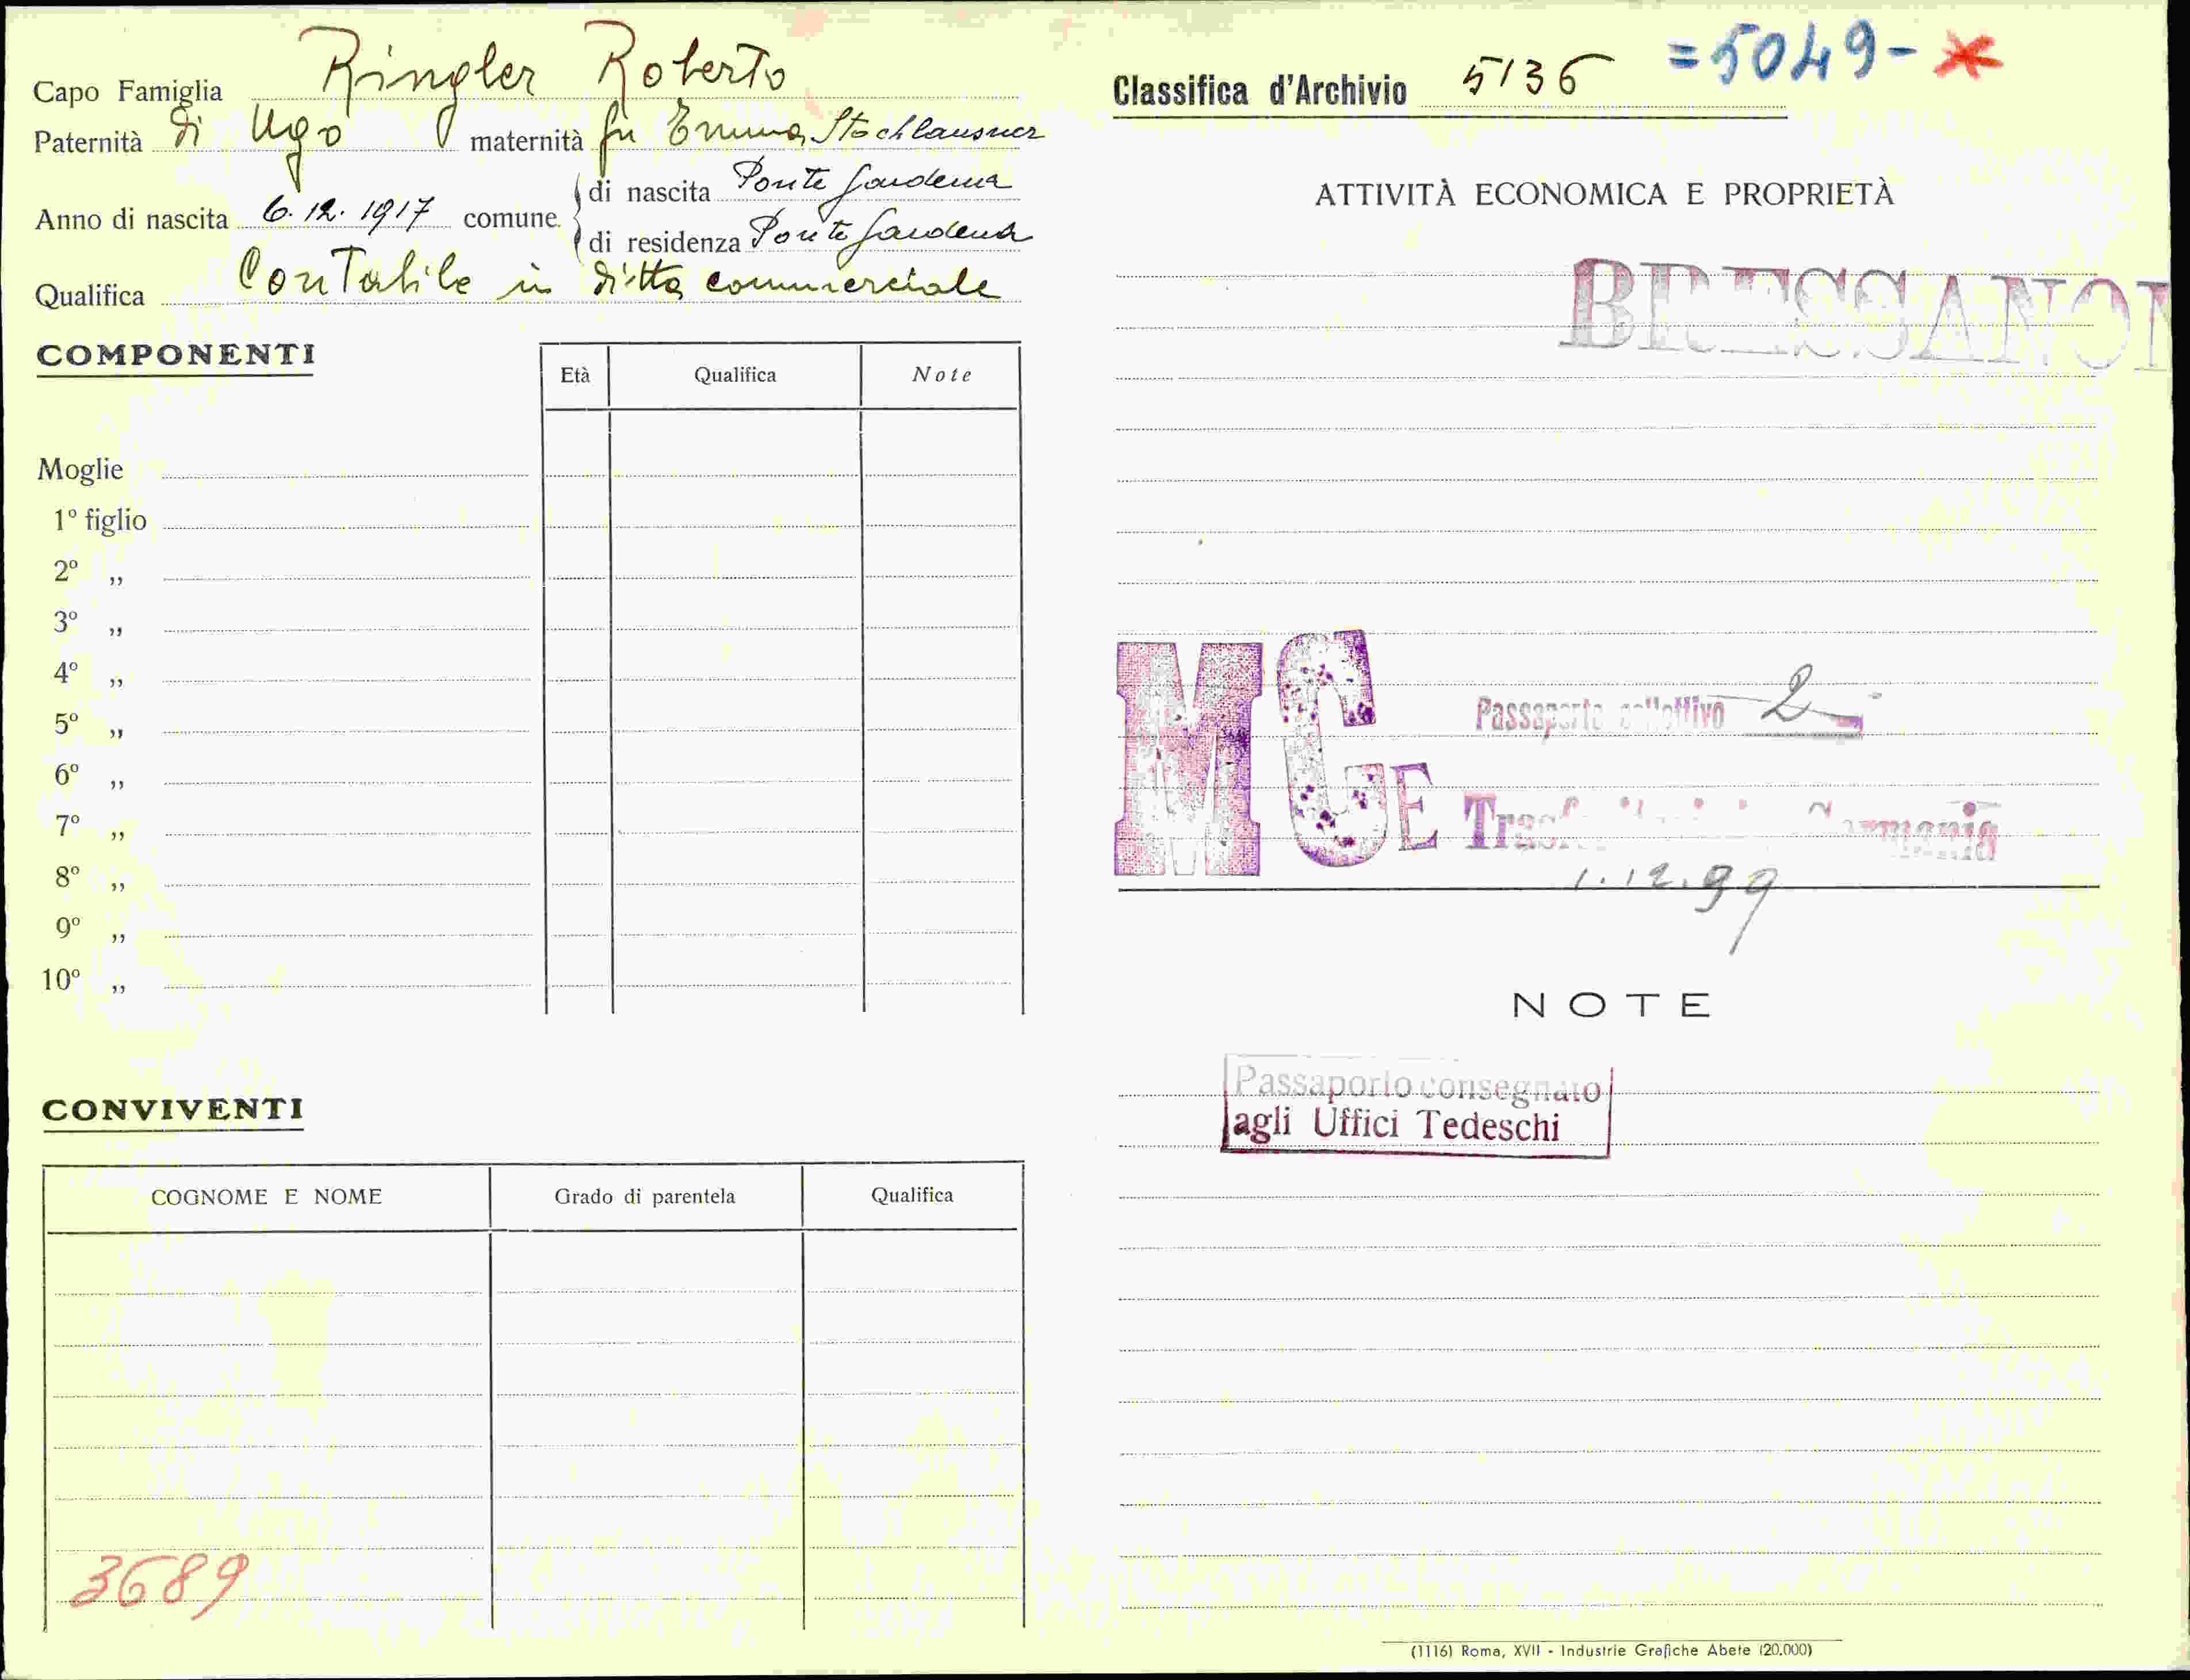 Capo Famiglia Ringler Roberto
Paternità di Ugo maternità fu Emma Stochlausner
Anno di nascita 6.12.1917 comune di nascita Ponte Gardena
di residenza Ponte Gardena
Qualifica Contabile in ditta commerciale
COMPONENTI
Età Qualifica Note
Moglie
1º figlio
2º „
3º „
4º „
5º „
6º „
7º „
8º „
9º „
10º „
CONVIVENTI
COGNOME E NOME Grado di parentela Qualifica
3689
Classifica d'Archivio 5136 =5049-
ATTIVITÀ ECONOMICA E PROPRIETÀ
BRESSANON
MGE
Passaporto collettivo 2
Germania
1.12.39
NOTE
Passaporto consegnato
agli Uffici Tedeschi
(1116) Roma, XVII - Industrie Grafiche Abete (20.000)